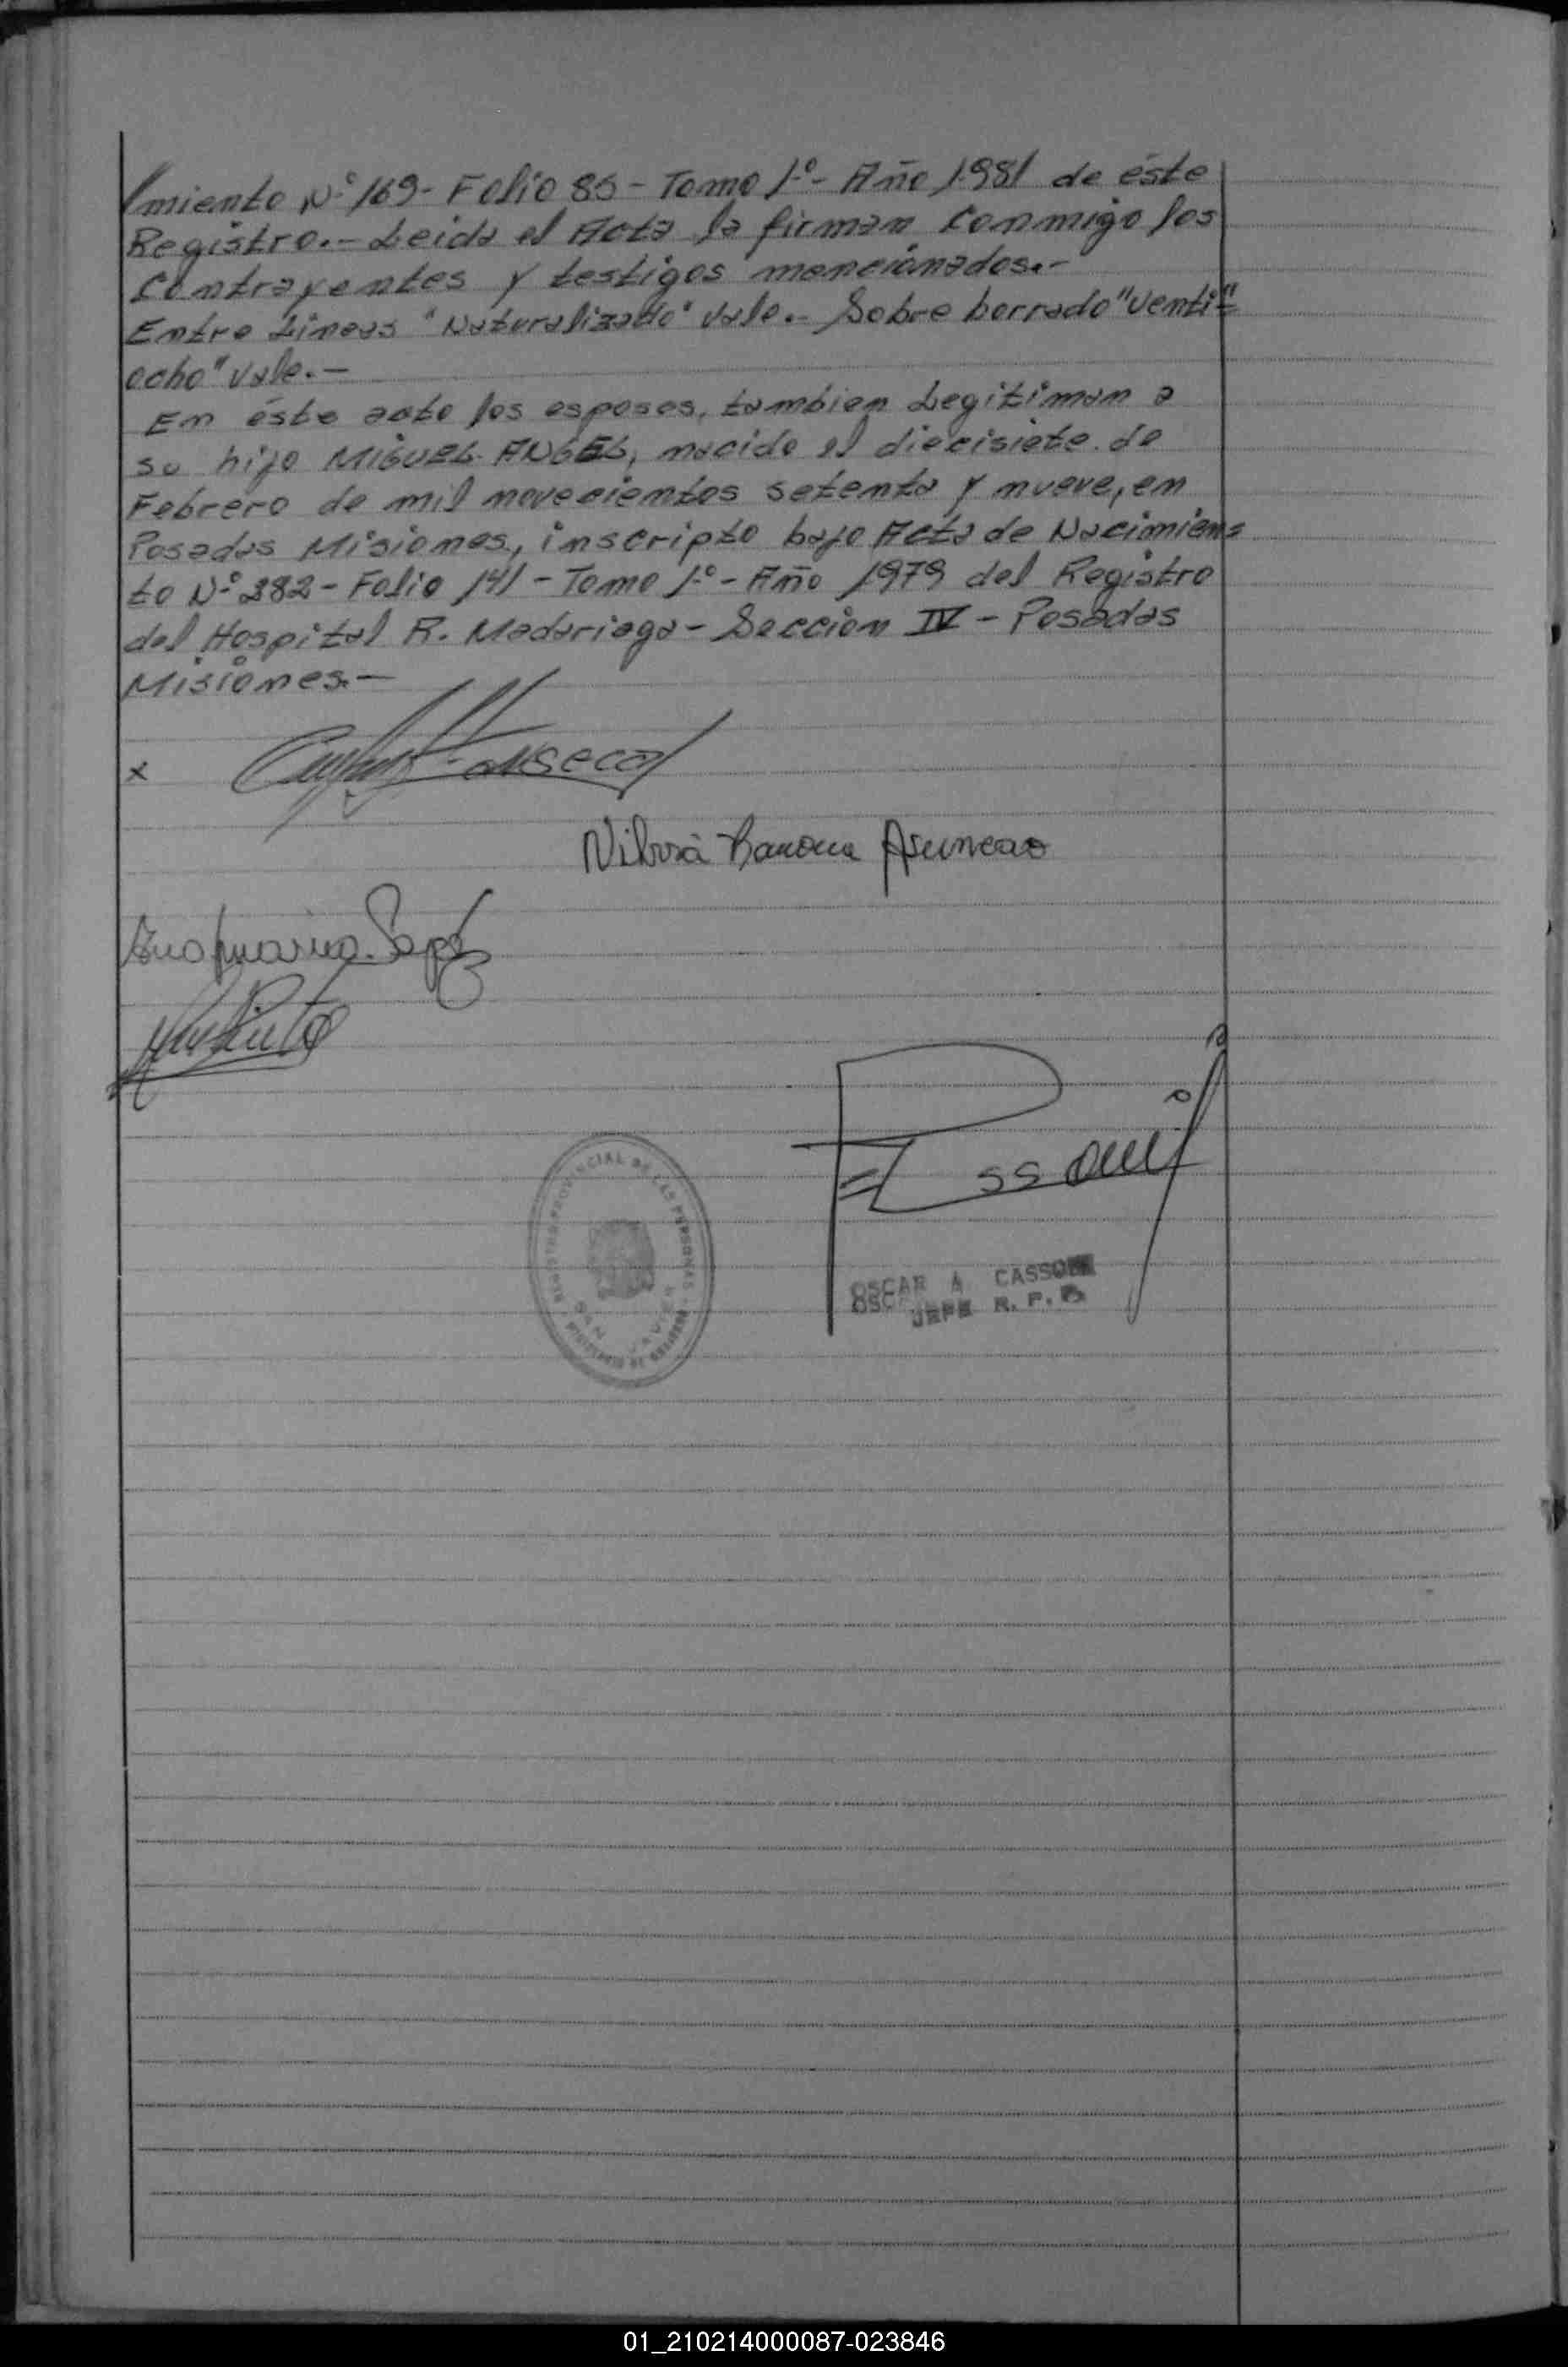 /miento Nº 169- Folio 85 - Tomo 1º- Año 1981 de éste
Registro.- Leida el Acta la firman conmigo los
Contrayentes y testigos mencionados.-
Entre Lineas "Naturalizado" vale.- Sobre borrado "Venti=
ocho" vale.-
En éste acto los esposos, tambien Legitiman a
su hijo MIGUEL ANGEL, nacido el diecisiete de
Febrero de mil novecientos setenta y nueve, en
Posadas Misiones, inscripto bajo Acta de Nacimien=
to Nº 282 - Folio 141 - Tomo 1º - Año 1979 del Registro
del Hospital R. Madariaga - Seccion IV - Posadas
Misiones.-
x Fonseca
Ramona Asuncao
REGISTRO PROVINCIAL DE LAS PERSONAS
SAN JAVIER
OSCAR A CASSO
JEFE R. P.
01_210214000087-023846